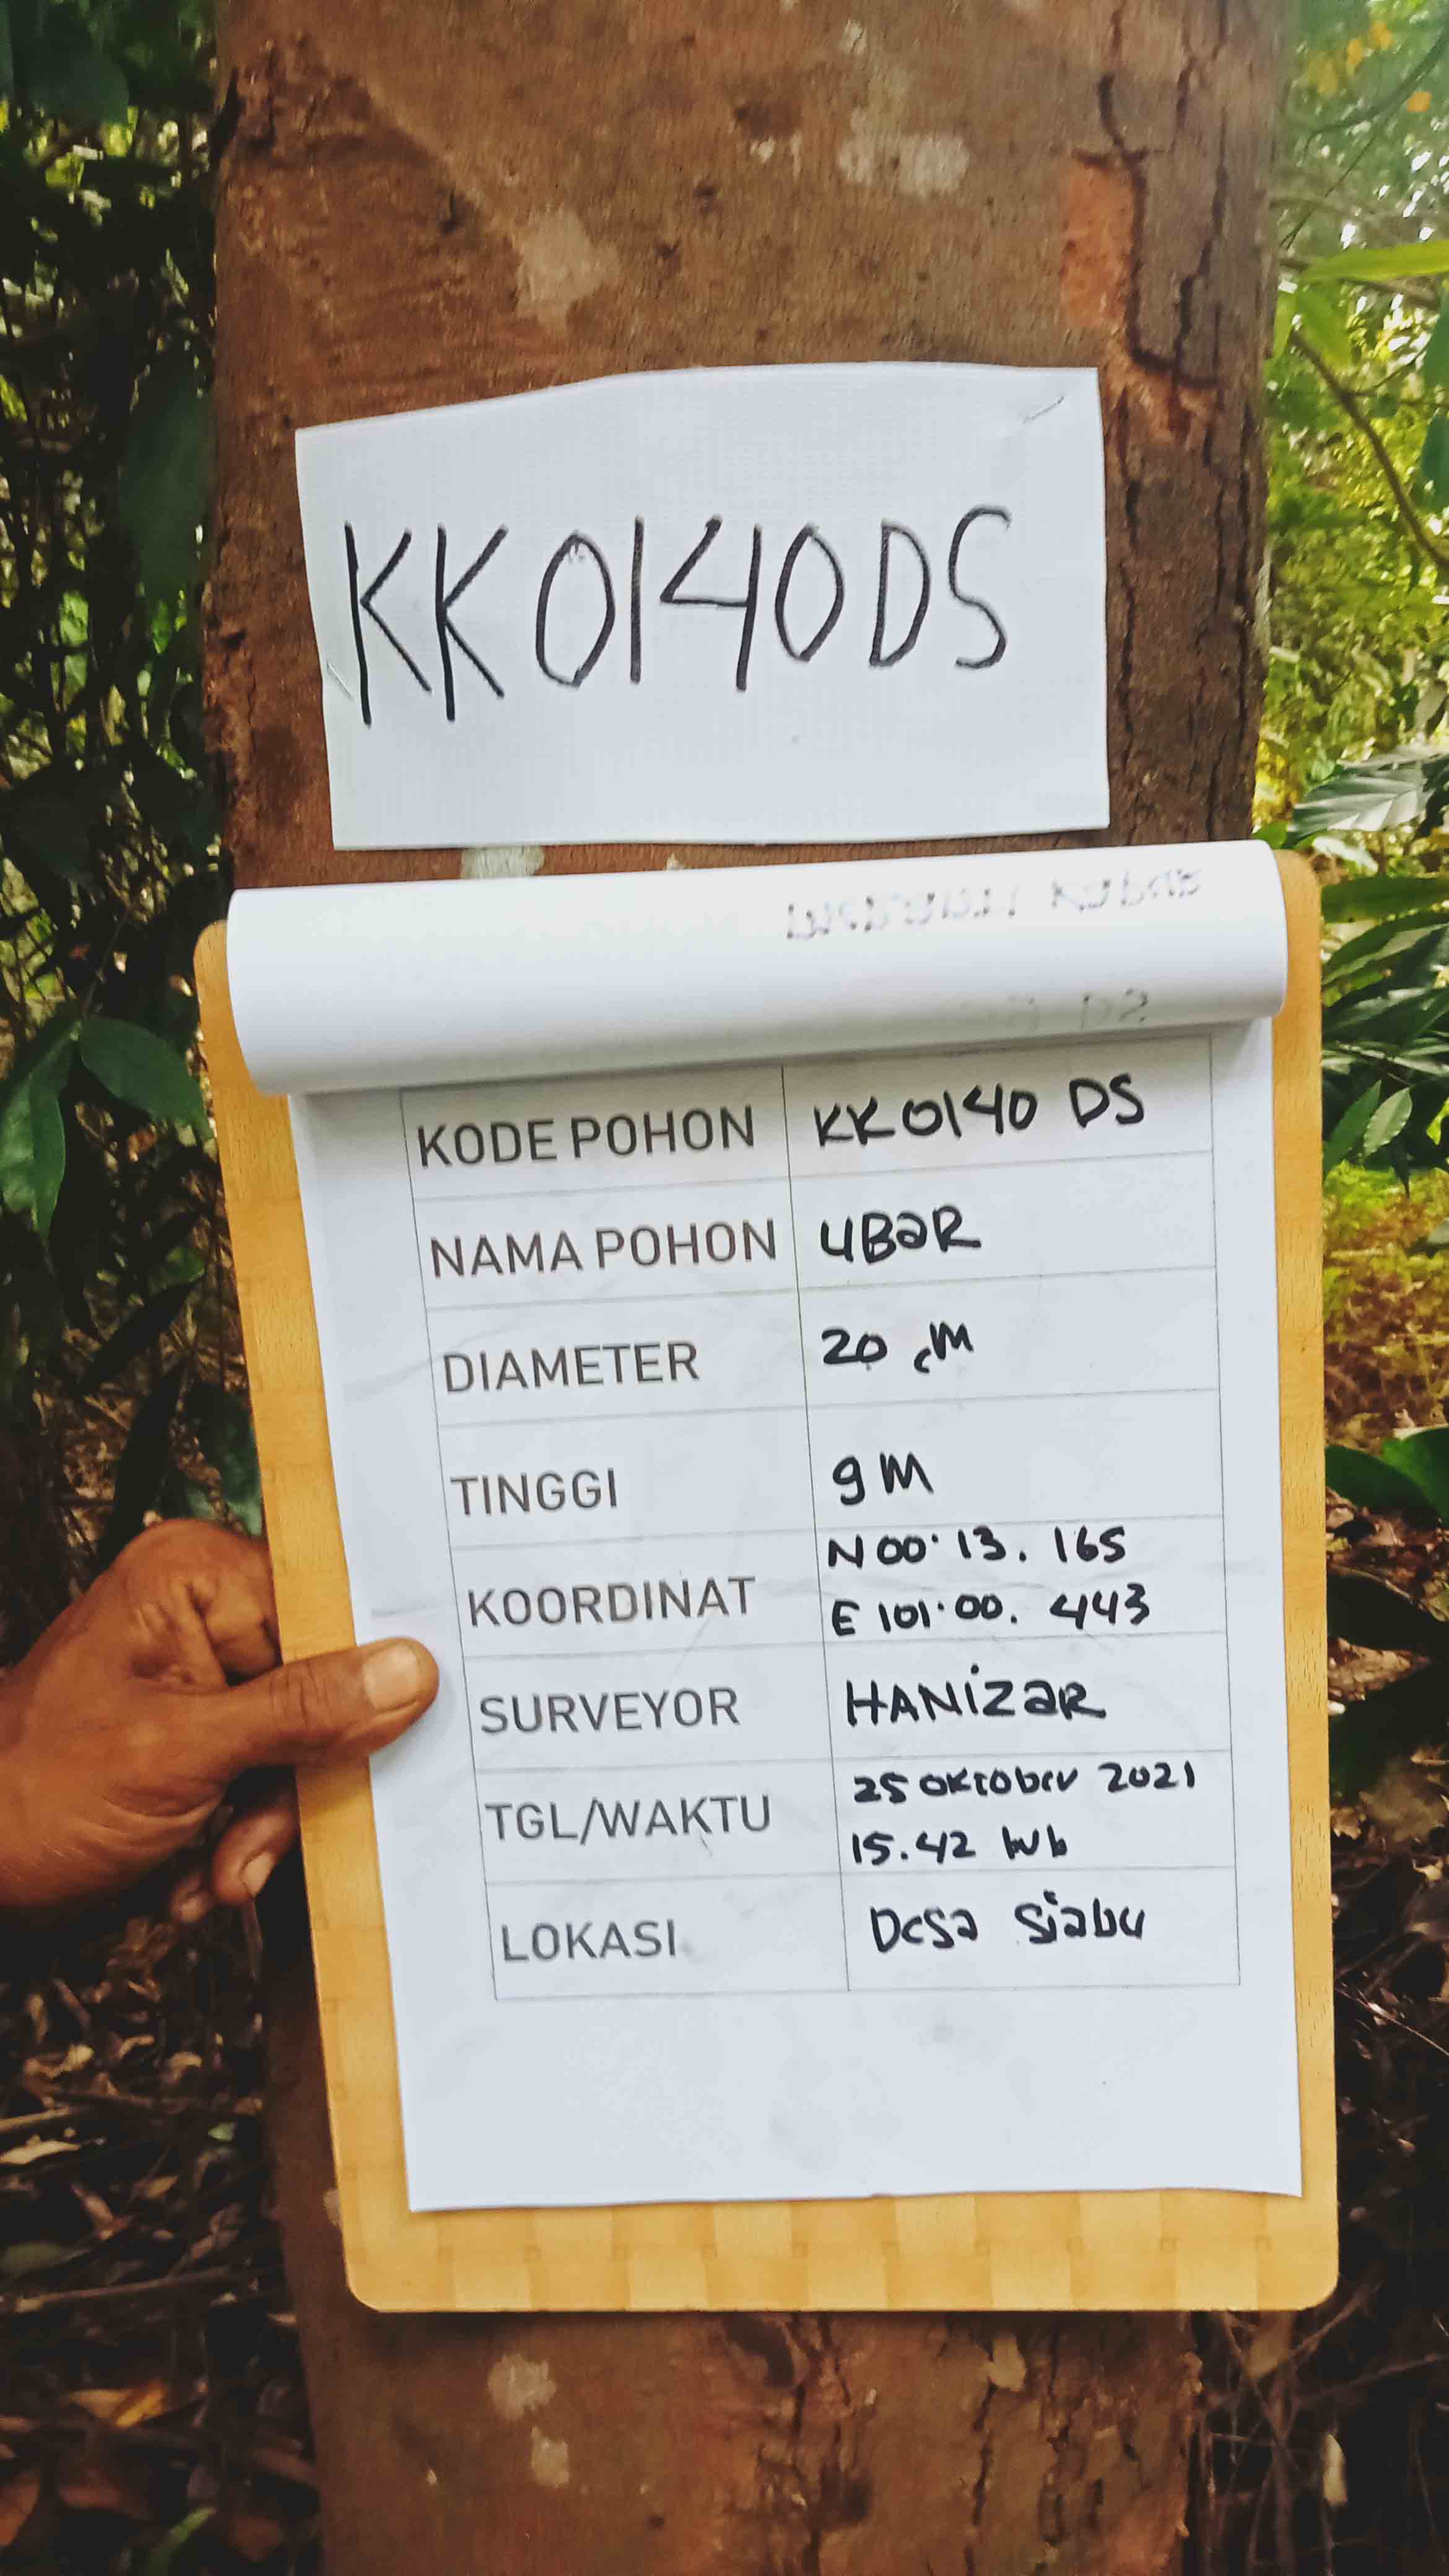 KK0140DS
KODE POHON KK0140 DS
NAMA POHON UBaR
DIAMETER 20 cM
TINGGI 9 M
KOORDINAT N 00° 13. 165
E 101° 00. 443
SURVEYOR HANiZaR
TGL/WAKTU 25 oktober 2021
15.42 wib
LOKASI Desa Siabu